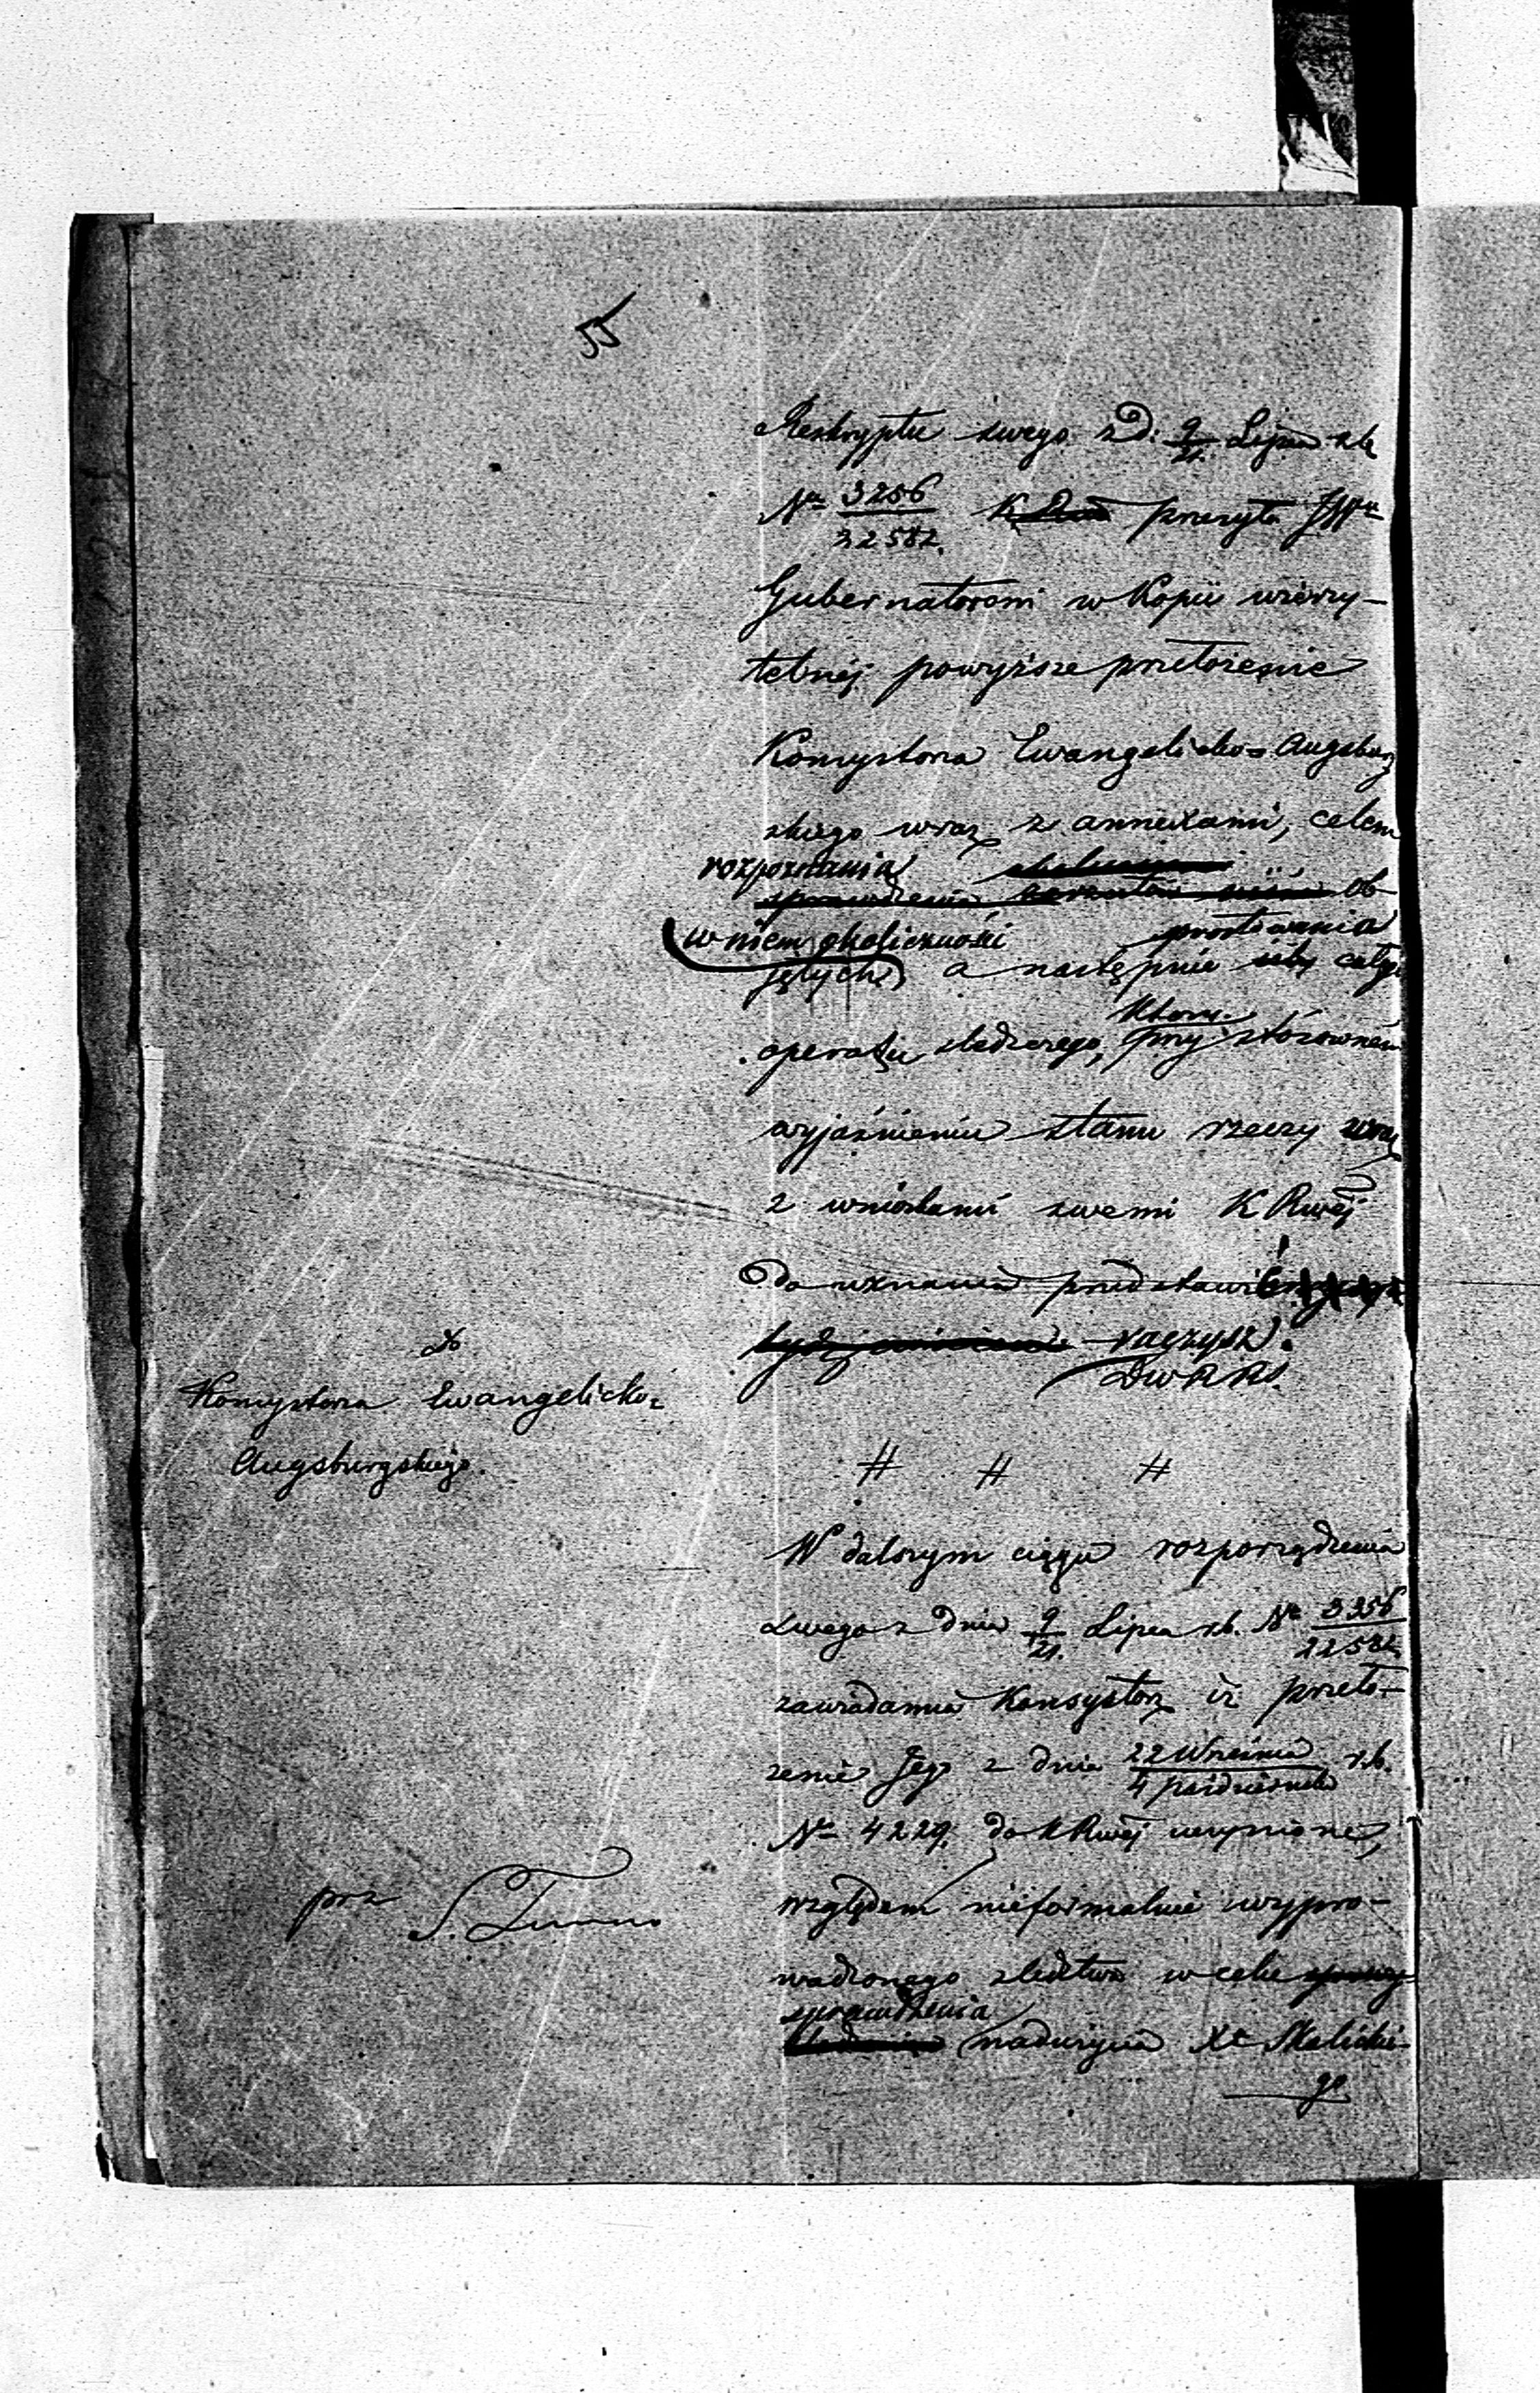 55
Reskryptu swego z d: 9/21 Lipca rb
No 3256/32582. przesyła JWu
Gubernatorowi w Kopii wierzy-
telnéj powyższe przełożenie
Konsystorza Ewangelicko-Augsburg
skiego wraz z annexami, celem
rozpoznania
ob
w niem okoliczności prostowania
jętych a następnie całego
operatu śledczego, który przy stosownem
wyjaśnieniu stanu rzeczy
z wnioskami swemi K Rwéj
do uznania przedstawić
raczysz.
DWRRS.
do
Konsystorza Ewangelicko-
Augsburgskiego.
# # #
W dalszym ciągu rozporządzenia
swego z dnia 9/21. Lipca rb. No 3356/22582
zawiadamia Konsystorz iż przeło-
żenie Jego z dnia 22 Września/4 Października r.b.
No 4229. do K Rwéj uczynione,
prz S.
względem nieformalnie wypro-
wadzonego śledztwa w celu
sprawdzenia
nadużycia Xa
go